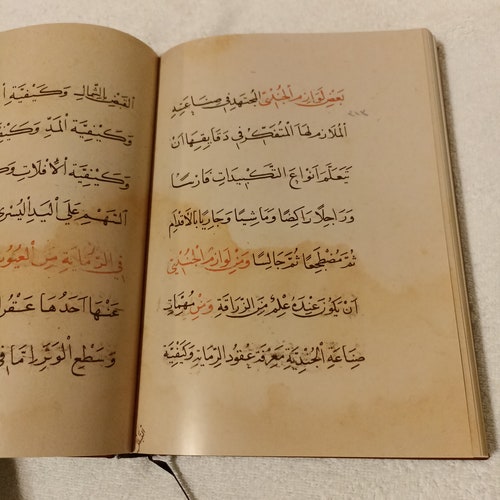 بَعْضِ لَوَازِمِ الْجُنْدِيِّ الْمُجْتَهِدِ فِي صِنَاعَتِهِ
الْمُلَازِمِ لَهَا الْمُتَفَكِّرِ فِي دَقَايِقِهَا اَنْ
يَتَعَلَّمَ اَنْوَاعَ التَّنْكِيدَاتِ فَارِسًا
وَرَاجِلًا رَاكِضًا وَمَاشِيًا وَجَارِيًا بِالْاَقْدَامِ
ثُمَّ مُضْطَجِعًا ثُمَّ جَالِسًا وَمِنْ لَوَازِمِ الْجُنْدِيِّ
اَنْ يَكُونَ عِنْدَهُ عِلْمٌ مِنَ الزَّرَاقَةِ وَمِنْ مُهِمَّاتِ
صِنَاعَةِ الْجُنْدِيَّةِ مَعْرِفَةُ عُقُودِ الرِّمَايَةِ وَكَيْفِيَّةِ
وَكَيْفِيَّةِ
وَكَيْفِيَّةِ الْمَدِّ وَكَيْفِ
وَكَيْفِيَّةِ الْاِفْلَاتِ وَكَ
السَّهْمِ عَلَى الْيَدِ الْيُسْرَى
فِي الرِّمَايَةِ مِنَ الْعُيُو
عَنْهَا اَحَدُهَا عَقْرُ
وَسَطْعِ الْوَتَرِ اِنَّمَا